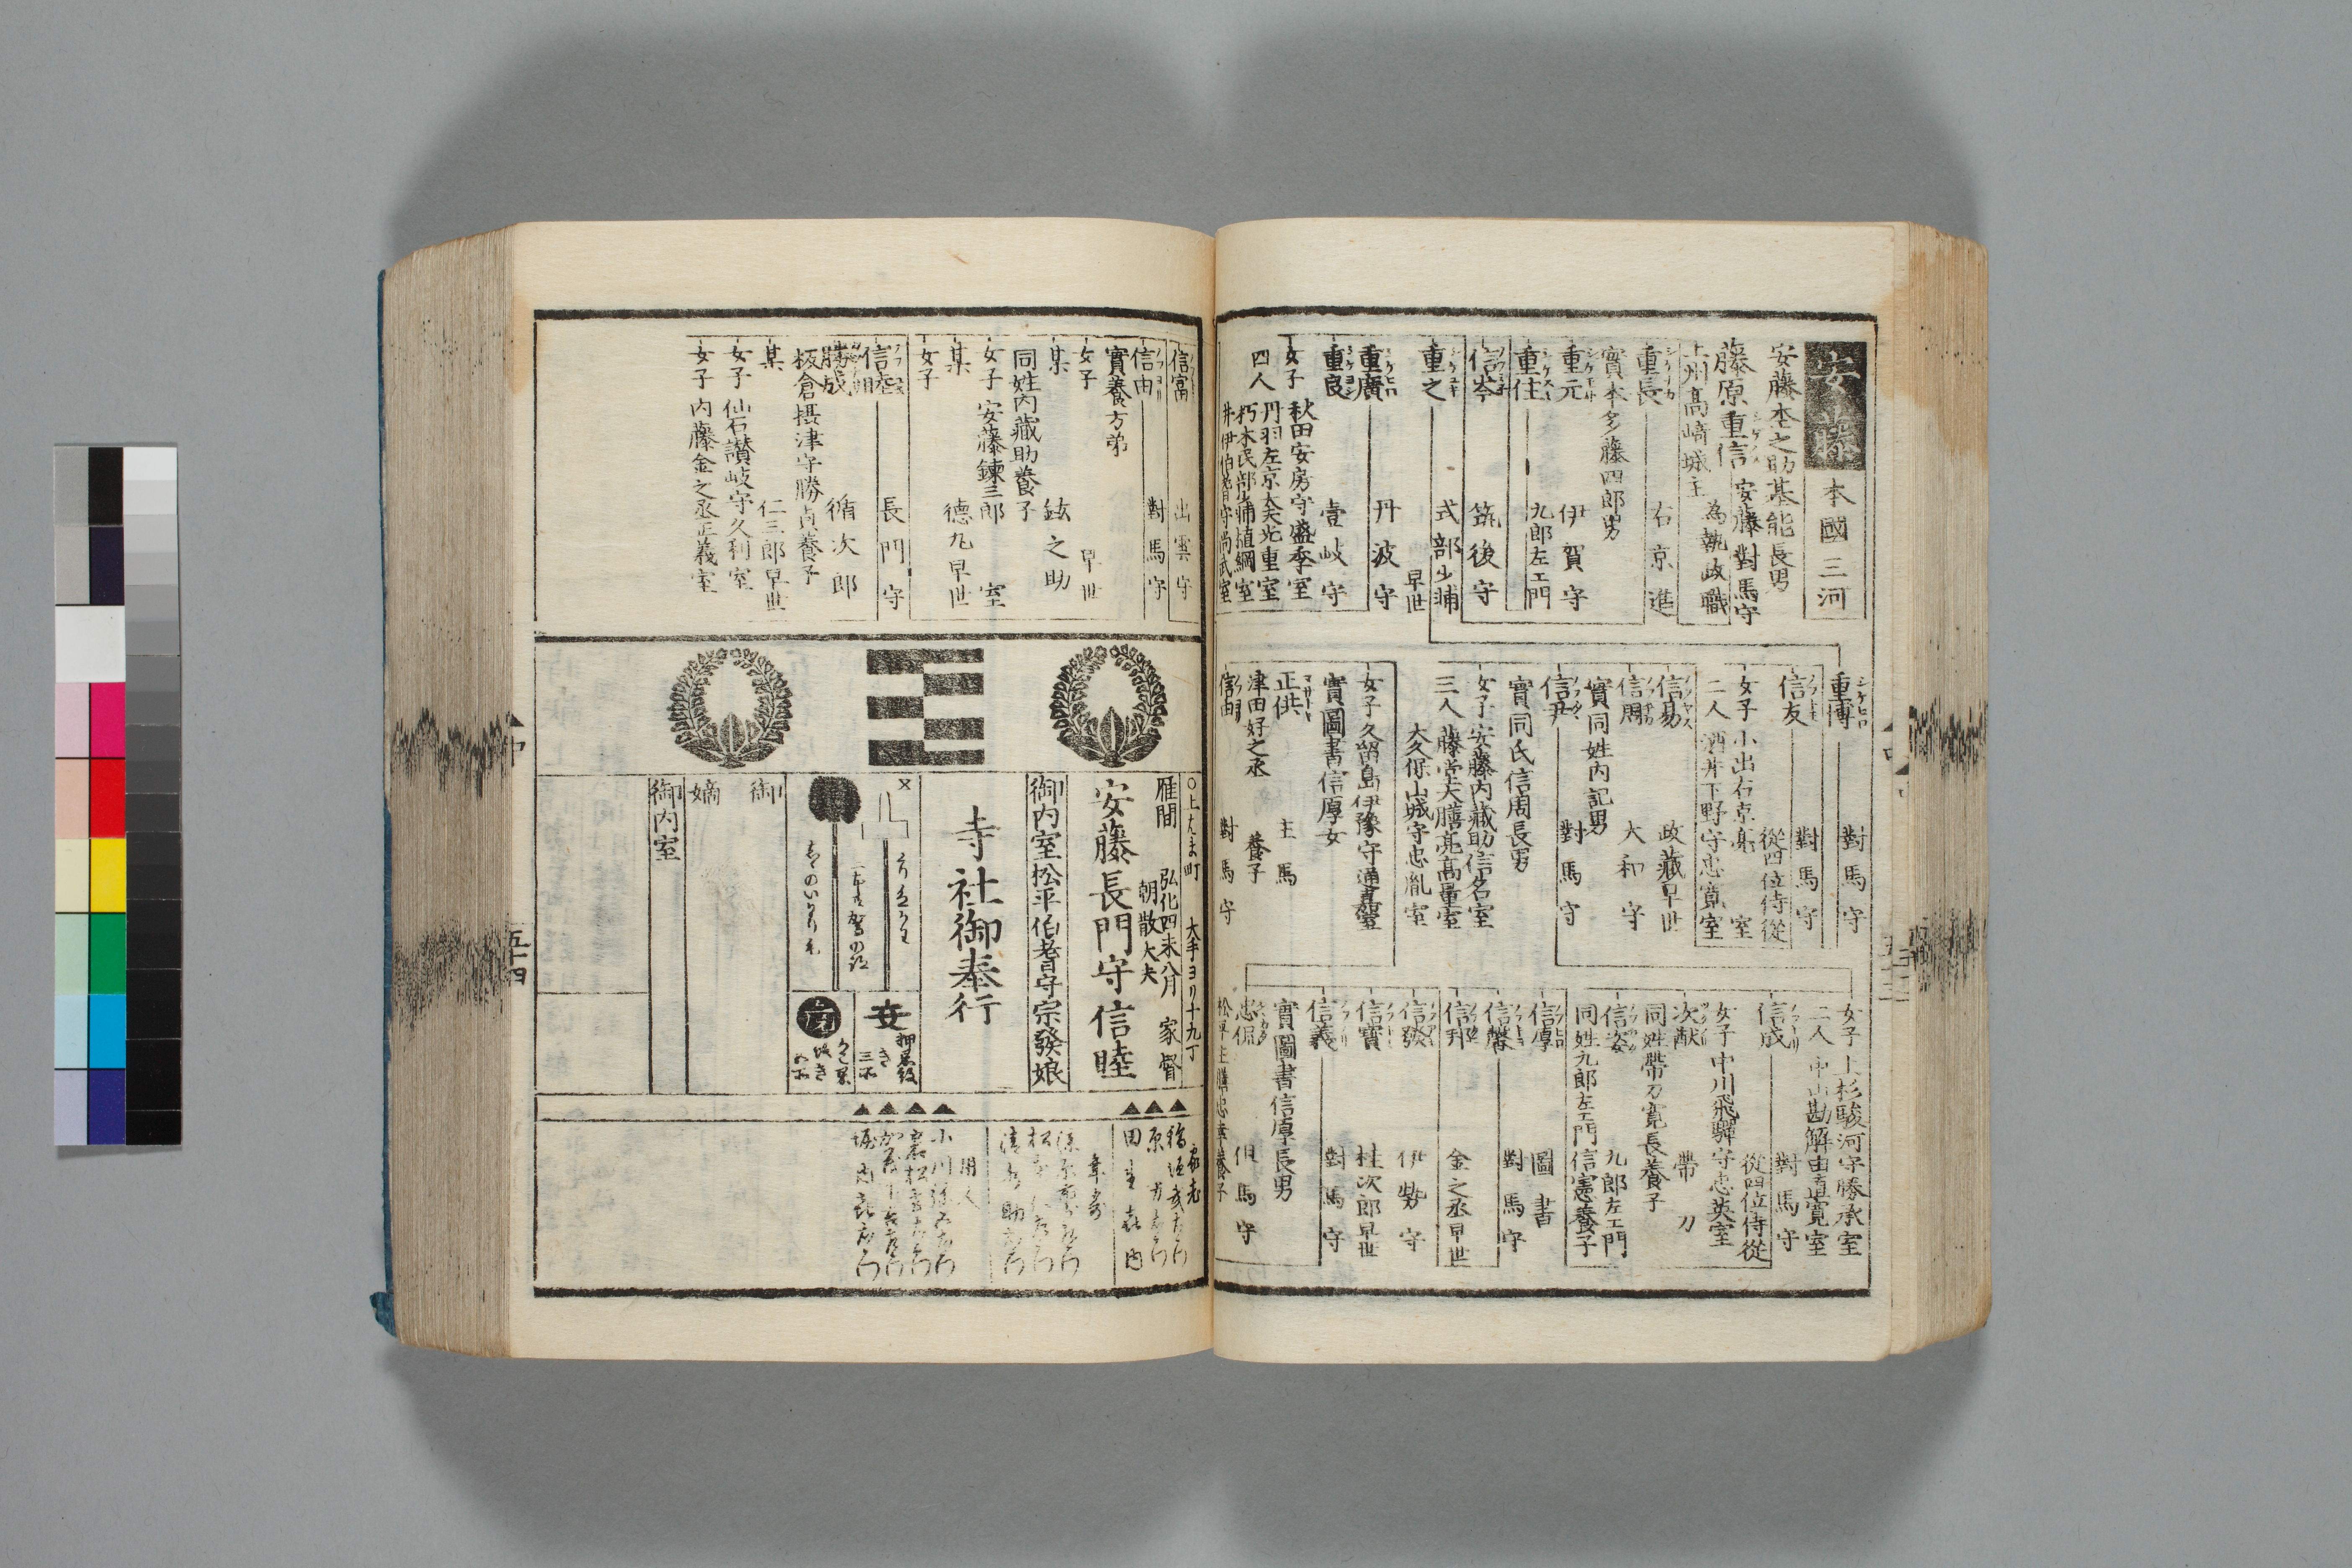 安藤
本國三河
安藤杢之助基能長男
藤原重信 安藤對馬守
上州高崎城主 為執政職
重長 右京進
實本多藤四郎男
重元 伊賀守
重住 九郎左エ門
信岑 筑後守
重之 式部少輔
早世
重廣 丹波守
重良 壹岐守
女子 秋田安房守盛季室
四人 丹羽左京大夫光重室
朽木民部少輔植綱室
井伊伯耆守尚武室
重博 對馬守
信友 對馬守
從四位侍從
女子 小出右京亮室
二人 酒井下野守忠寛室
信易 政藏早世
信周 大和守
實同姓内記男
信尹 對馬守
實同氏信周長男
女子 安藤内藏助信名室
三人 藤堂大膳亮高量室
大久保山城守忠胤室
女子 久留島伊豫守通嘉室
實圖書信厚女
正供 主馬
津田好之丞養子
信由 對馬守
女子 上杉駿河守勝承室
二人 中山勘解由直寛室
信成 對馬守
從四位侍從
女子 中川飛騨守忠英室
次猷 帶刀
同姓帶刀寛長養子
信姿 九郎左エ門
同姓九郎左エ門信憲養子
信厚 圖書
信馨 對馬守
信邦 金之丞早世
信發 伊勢守
信寶 桂次郎早世
信義 對馬守
實圖書信厚長男
忠侃 但馬守
信富 出雲守
信由 對馬守
實養方弟
女子 早世
某 鉉之助
同姓内藏助養子
女子 安藤鍊三郎室
某 德九早世
女子
信睦 長門守
勝成 循次郎
板倉摂津守勝貞養子
某 仁三郎早世
女子 仙石讃岐守久利室
女子 内藤金之丞正義室
大手ヨリ十九丁
雁間 弘化四未八月家督
朝散大夫
安藤長門守信睦
御内室松平伯耆守宗發娘
寺社御奉行
安
御嫡
御内室
家老
用人
五十四